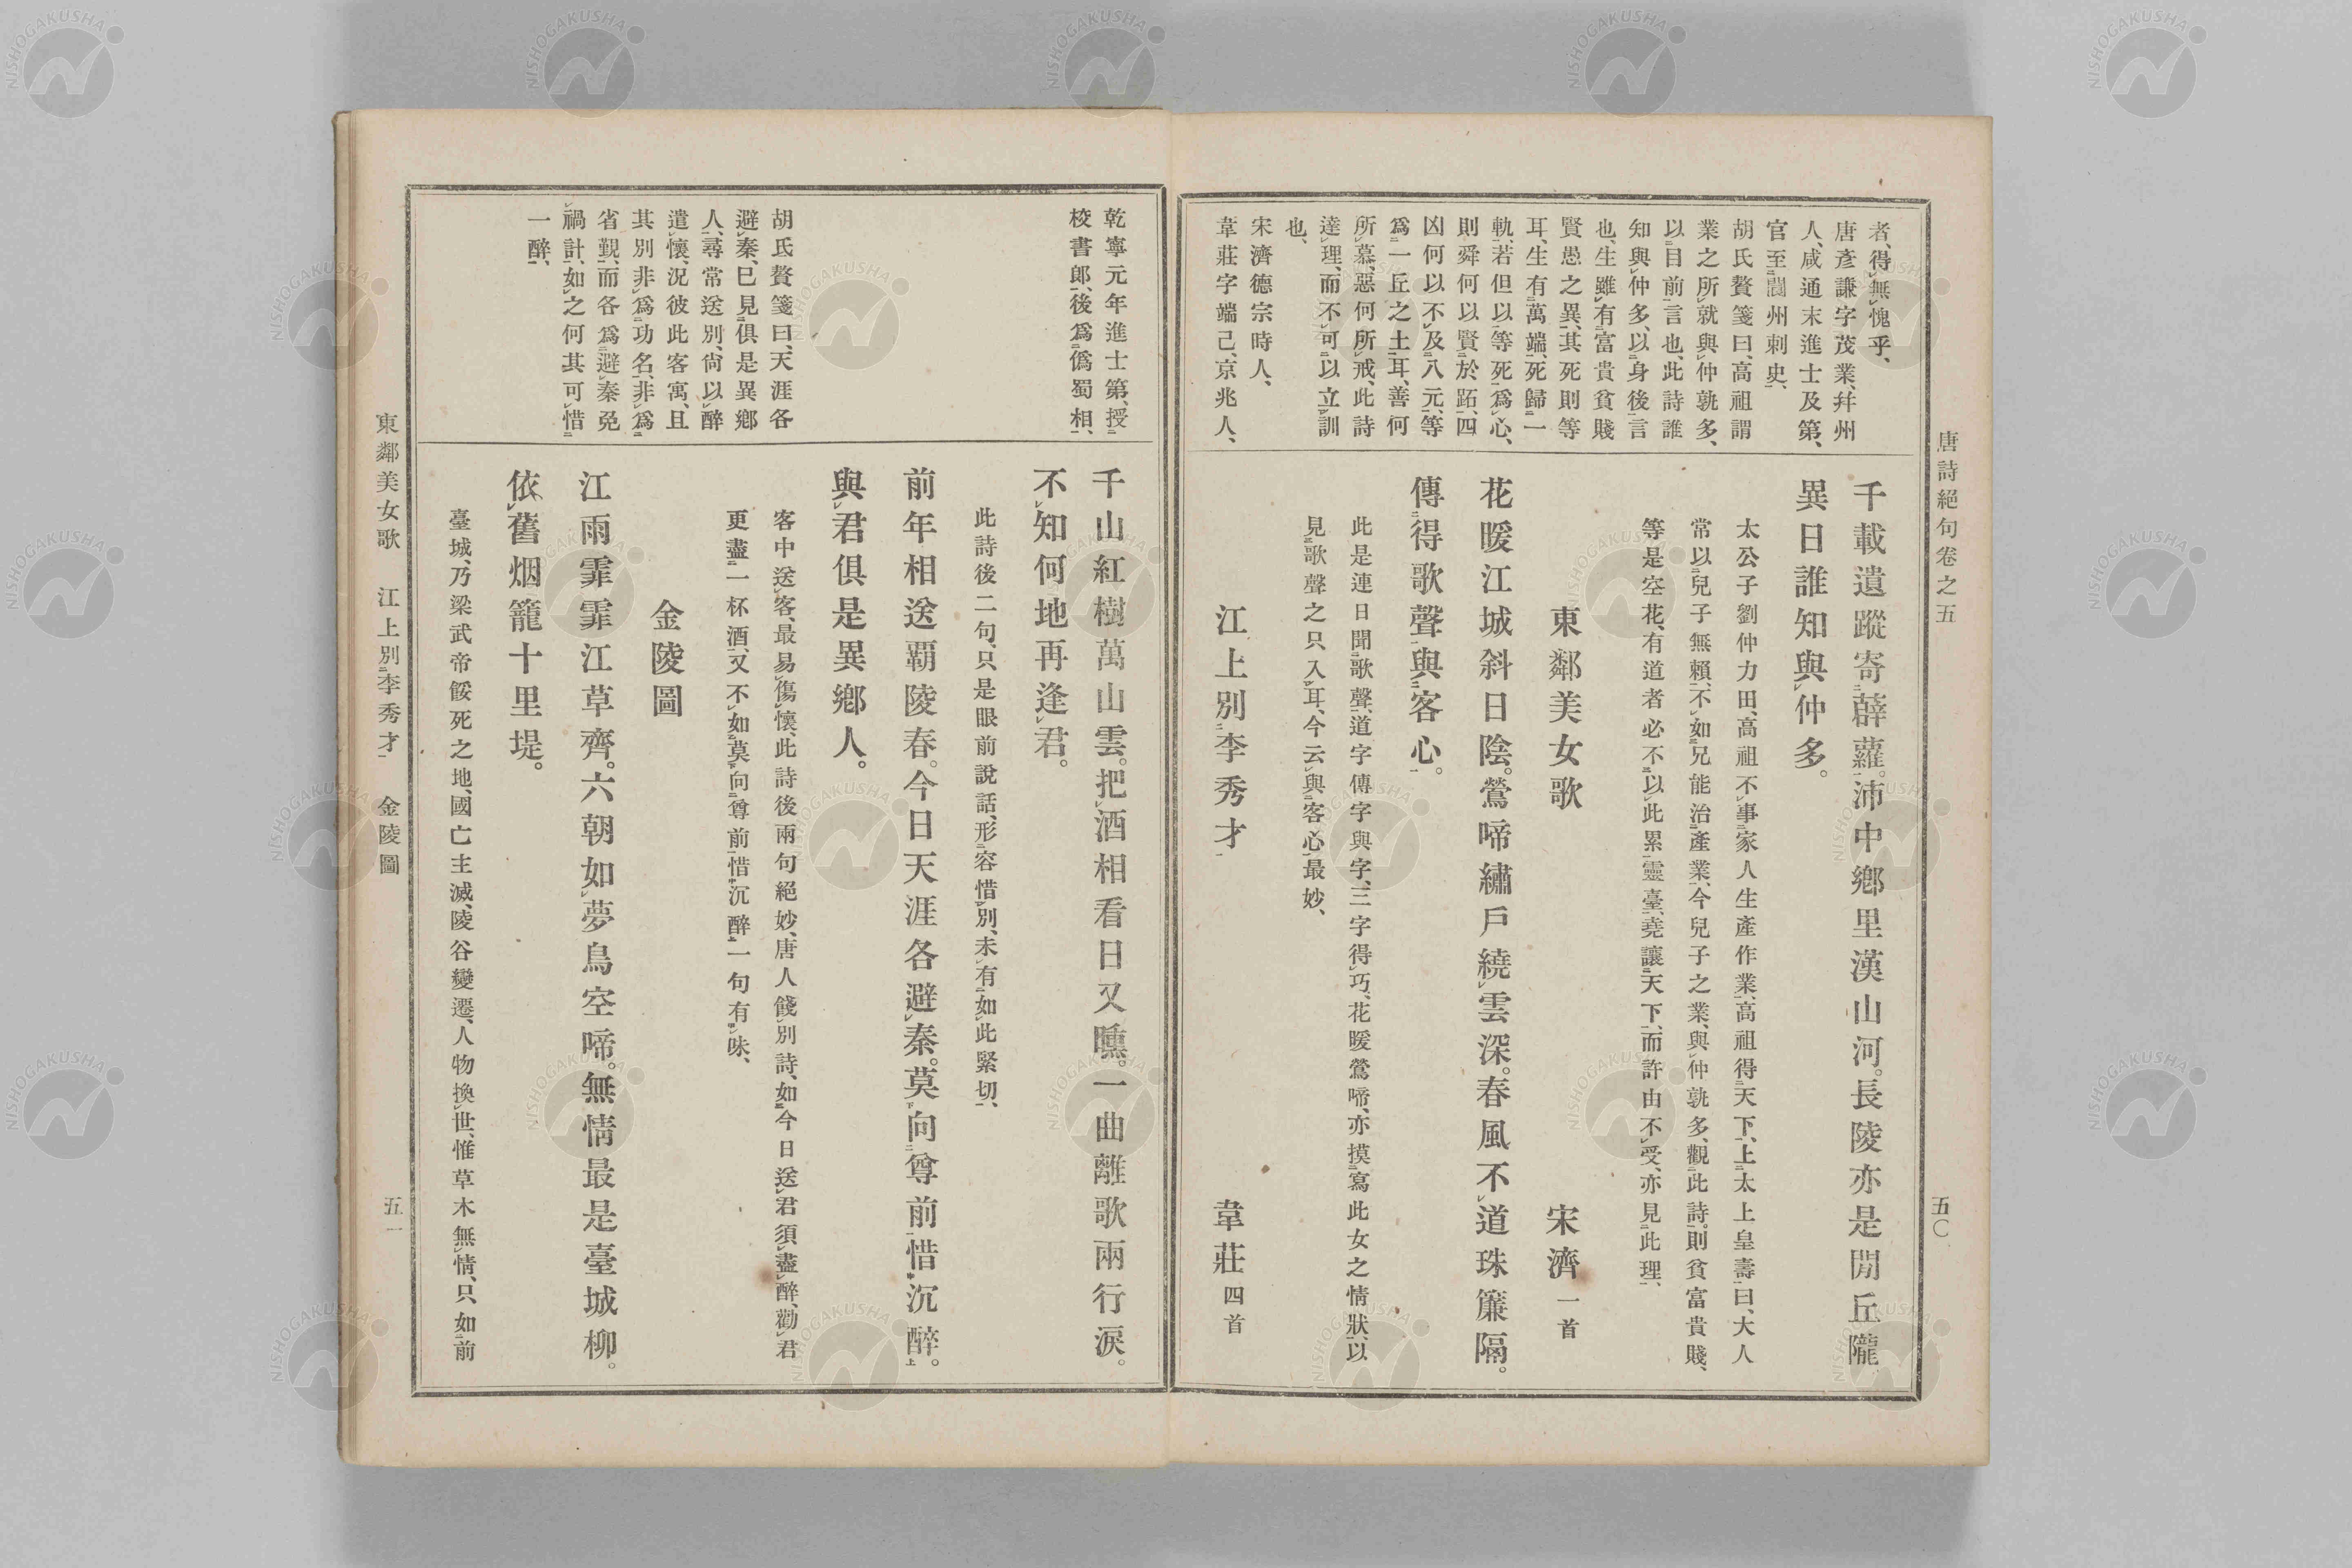 唐詩絕句卷之五
五〇
者、得無愧乎、
唐彥謙字茂業、幷州
人、咸通末進士及第、
官至閬州刺史、
胡氏贅箋曰、高祖謂
業之所就與仲孰多、
以目前言也、此詩誰
知與仲多、以身後言
也、生雖有富貴貧賤
賢愚之異、其死則等
耳、生有萬端、死歸一
軌、若但以等死爲心、
則舜何以賢於跖、四
凶何以不及八元、等
爲一丘之土耳、善何
所慕、惡何所戒、此詩
達理、而不可以立訓
也、
宋濟德宗時人、
韋莊字端己、京兆人、
千載遺蹤寄薜蘿。沛中鄉里漢山河。長陵亦是閒丘隴
異日誰知與仲多。
太公子劉仲力田、高祖不事家人生產作業、高祖得天下、上太上皇壽曰、大人
常以兒子無賴、不如兄能治產業、今兒子之業、與仲孰多、觀此詩。則貧富貴賤、
等是空花、有道者必不以此累靈臺、堯讓天下、而許由不受、亦見此理、
東鄰美女歌 宋濟一首
花暖江城斜日陰。鶯啼繡戶繞雲深。春風不道珠簾隔。
傳得歌聲與客心。
此是連日聞歌聲、道字傳字與字、三字得巧、花暖鶯啼、亦摸寫此女之情狀、以
見歌聲之只入耳、今云與客心、最妙、
江上別李秀才 韋莊四首
乾寧元年進士第、授
校書郎、後爲僞蜀相、
胡氏贅箋曰、天涯各
避秦、巳見俱是異鄉
人、尋常送別、尙以醉
遣懷、況彼此客寓、且
其別非爲功名、非爲
省覲、而各爲避秦免
禍計、如之何其可惜
一醉、
千山紅樹萬山雲。把酒相看日又曛。一曲離歌兩行淚。
不知何地再逢君。
此詩後二句、只是眼前說話、形容惜別、未有如此緊切、
前年相送覇陵春。今日天涯各避秦。莫向尊前惜沉醉。
與君俱是異鄉人。
客中送客、最易傷懷、此詩後兩句絕妙、唐人餞別詩、如今日送君須盡醉、勸君
更盡一杯酒、又不如莫向尊前惜沉醉一句有味、
金陵圖
江雨霏霏江草齊。六朝如夢鳥空啼。無情最是臺城柳。
依舊烟籠十里堤。
臺城、乃梁武帝餒死之地、國亡主滅、陵谷變遷、人物換世、惟草木無情、只如前
東鄰美女歌 江上別李秀才 金陵圖
五一
NISHOGAKUSHA